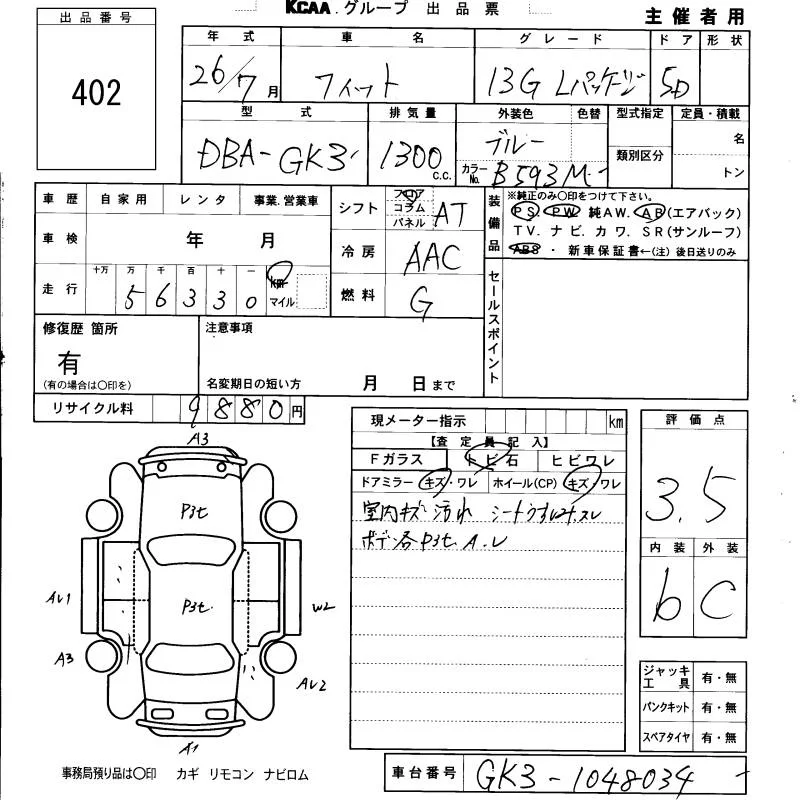 KCAA.グループ 出品票
主催者用
出品番号
402
年式 車名 グレード ドア 形状
26/7月 フィット 13G Lパッケージ 5D
型式 排気量 外装色 色替 型式指定 定員・積載
DBA-GK3 1300c.c. ブルー 名
カラーNo. B593M 類別区分 トン
車歴 自家用 レンタ 事業.営業車
車検 年 月
走行 十万 万 千 百 十 一
56330 km マイル
シフト フロア コラム パネル AT
冷房 AAC
燃料 G
装備品
※純正のみ○印をつけて下さい。
PS PW 純AW. AB(エアバック)
TV.ナビ.カワ.SR(サンルーフ)
ABS・新車保証書←(注)後日送りのみ
セールスポイント
修復歴 箇所
有
(有の場合は○印を)
注意事項
名変期日の短い方 月 日まで
リサイクル料 9880円
現メーター指示 km
【査定員記入】
Fガラス トビ石 ヒビワレ
ドアミラー キズ・ワレ ホイール(CP) キズ・ワレ
室内キズ 汚れ
ボデー各P3t A.U
評価点
3.5
内装 外装
b C
ジャッキ工具 有・無
パンクキット 有・無
スペアタイヤ 有・無
A3
P3t
P3t.
AU1
W2
A3
AU2
A1
事務局預り品は○印 カギ リモコン ナビロム
車台番号 GK3-1048034